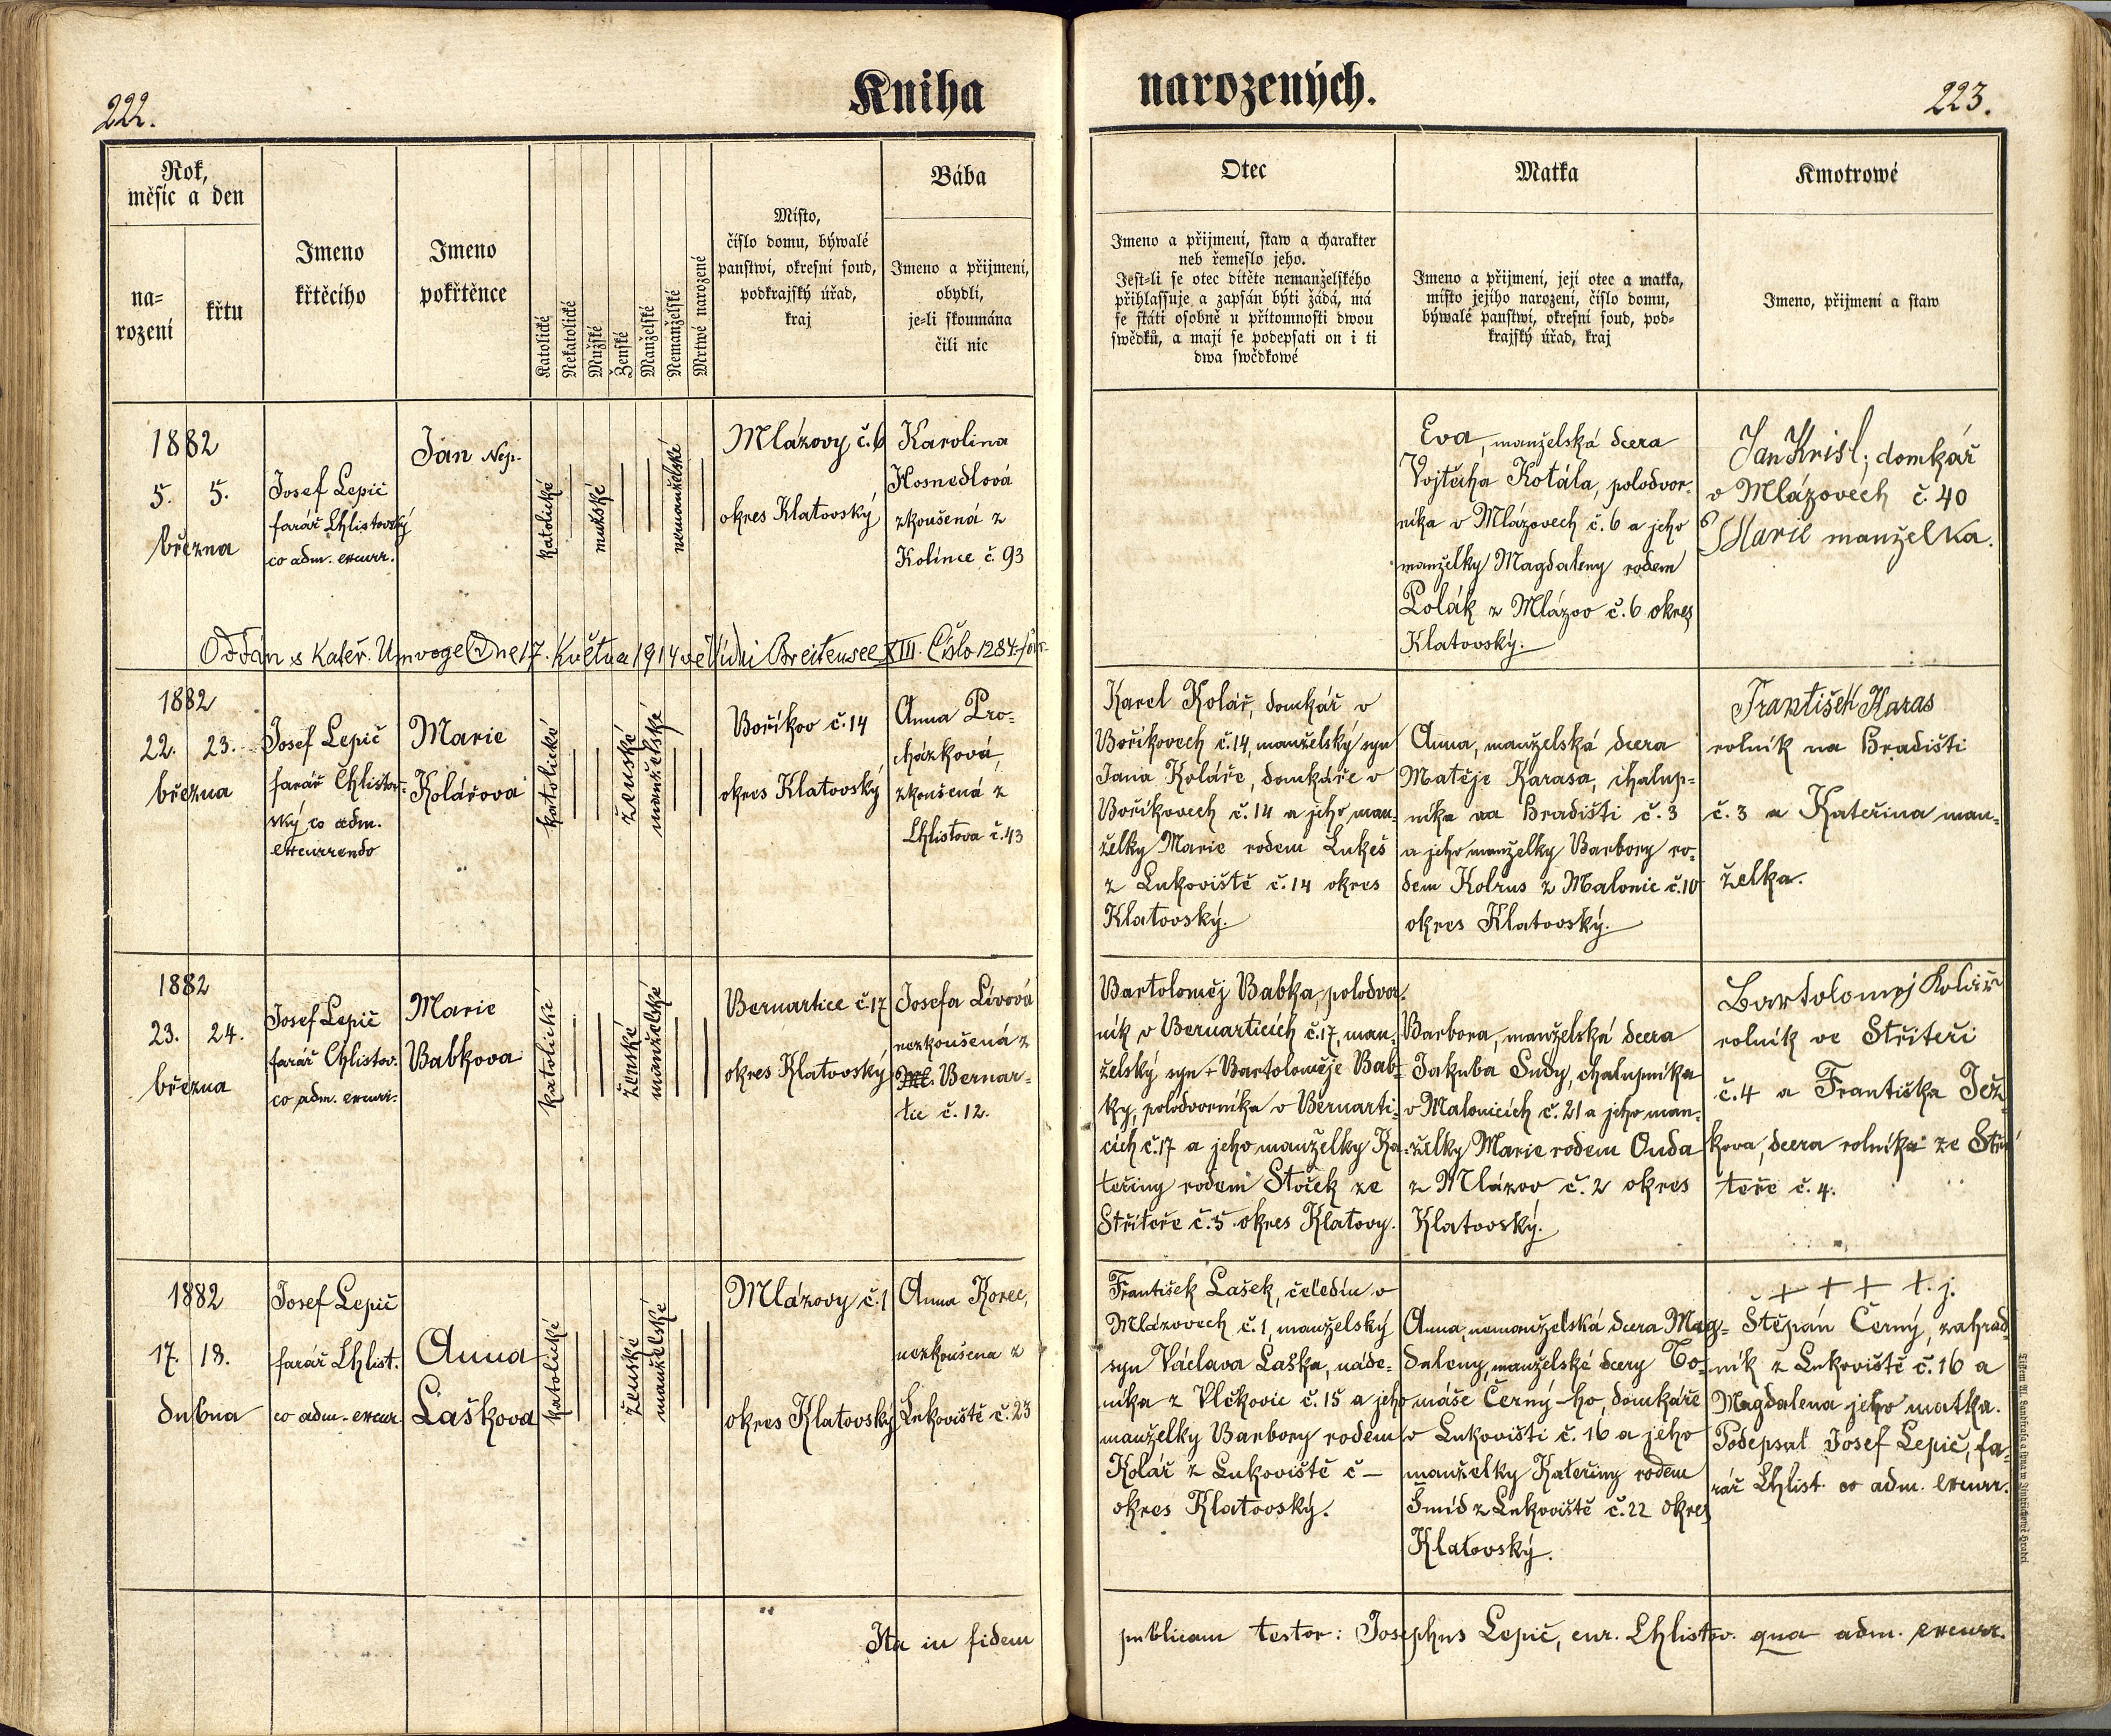 222.
Kniha
narozených.
223.
Rok,
měsíc a den
na=
rození
křtu
Imeno
křtěcího
Imeno
pokřtěnce
Katolické
Nekatolické
Mužské
Ženské
Manželské
Nemanželské
Mrtwě narozené
Místo,
číslo domu, býwalé
panstwí, okresní soud,
podkrajský úřad,
kraj
Bába
Imeno a příjmení,
obydlí,
je=li skoumána
čili nic
Otec
Imeno a příjmení, staw a charakter
neb řemeslo jeho.
Jest=li se otec dítěte nemanželského
přihlassuje a zapsán býti žádá, má
se státi osobně u přítomnosti dwou
swědků, a mají se podepsati on i ti
dwa swědkowé
Matka
Imeno a příjmení, její otec a matka,
místo jejího narození, číslo domu,
býwalé panstwí, okresní soud, pod=
krajský úřad, kraj
Kmotrowé
Imeno, příjmení a staw
1882
5. 5.
března
Josef Lepič
farář Chlistovský
co adm. excurr.
Jan Nep.
katolické
mužské
nemanželské
Mlázovy č. 6
okres Klatovský
Karolina
Hosnedlová
zkoušená z
Kolince č. 93
Eva, manželská dcera
Vojtěcha Kotála, polodvor-
níka v Mlázovech č. 6 a jeho
manželky Magdaleny rodem
Polák z Mlázov č. 6 okres
Klatovský.
Jan Krisl; domkář
v Mlázovech č. 40
Marie manželka.
Oddán s Kateř. Umvogel Dne 17. Května 1914 ve Vídni Breitensee XIII. Číslo 1287
1882
22. 23.
března
Josef Lepič
farář Chlistov=
ský co adm.
excurrendo
Marie
Kolářova
katolické
ženské
manželské
Boříkov č. 14
okres Klatovský
Anna Pro=
cházková,
zkoušená z
Chlistova č. 43
Karel Kolář, domkář v
Boříkovech č. 14, manželský syn
Jana Koláře, domkáře v
Boříkovech č. 14 a jeho man-
želky Marie rodem Lukeš
z Lukoviště č. 14 okres
Klatovský.
Anna, manželská dcera
Matěje Karasa, chalup=
níka na Hradišti č. 3
a jeho manželky Barbory ro=
dem Kolrus z Malonic č. 10
okres Klatovský.
František Karas
rolník na Hradišti
č. 3 a Kateřina man=
želka.
1882
23. 24.
března
Josef Lepič
farář Chlistov.
co adm. excurr.
Marie
Babkova
katolické
ženské
manželské
Bernartice č. 17
okres Klatovský
Josefa Lívová
nezkoušená z
Ml. Bernar=
tic č. 12.
Bartoloměj Babka, polodvor-
ník v Bernarticích č. 17, man-
želský syn + Bartoloměje Bab=
ky, polodvorníka v Bernarti=
cích č. 17 a jeho manželky Ka-
teřiny rodem Stoček ze
Stříteře č. 5 okres Klatovy.
Barbora, manželská dcera
Jakuba Sudy, chalupníka
v Malonicích č. 21 a jeho man-
želky Marie rodem Ouda
z Mlázov č. 2 okres
Klatovský.
Bartolomej Kolář
rolník ve Stříteři
č. 4 a Františka Jež
kova, dcera rolníka ze Stří
teře č. 4.
1882
17. 18.
dubna
Josef Lepič
farář Chlist.
co adm. excur.
Anna
Laškova
katolické
ženské
manželské
Mlázovy č. 1
okres Klatovský
Anna Korec,
nezkoušena z
Lukoviště č. 23
František Lašek, čeledín v
Mlázovech č. 1, manželský
syn Václava Laška, náde=
níka z Vlčkovic č. 15 a jeho
manželky Barbory rodem
Kolář z Lukoviště č –
okres Klatovský.
Anna, nemanželská dcera Mag=
daleny, manželské dcery To=
máše Černý-ho, domkáře
v Lukovišti č. 16 a jeho
manželky Kateřiny rodem
Šmíd z Lukoviště č. 22 okres
Klatovský.
+ + + t. j.
Štěpán Černý, zahrad
ník z Lukoviště č. 16 a
Magdalena jeho matka.
Podepsal Josef Lepič, fa=
rář Chlist. co adm. excurr.
Ita in fidem
publicam testor: Josephus Lepič, cur. Chlistov. qua adm. excurr.